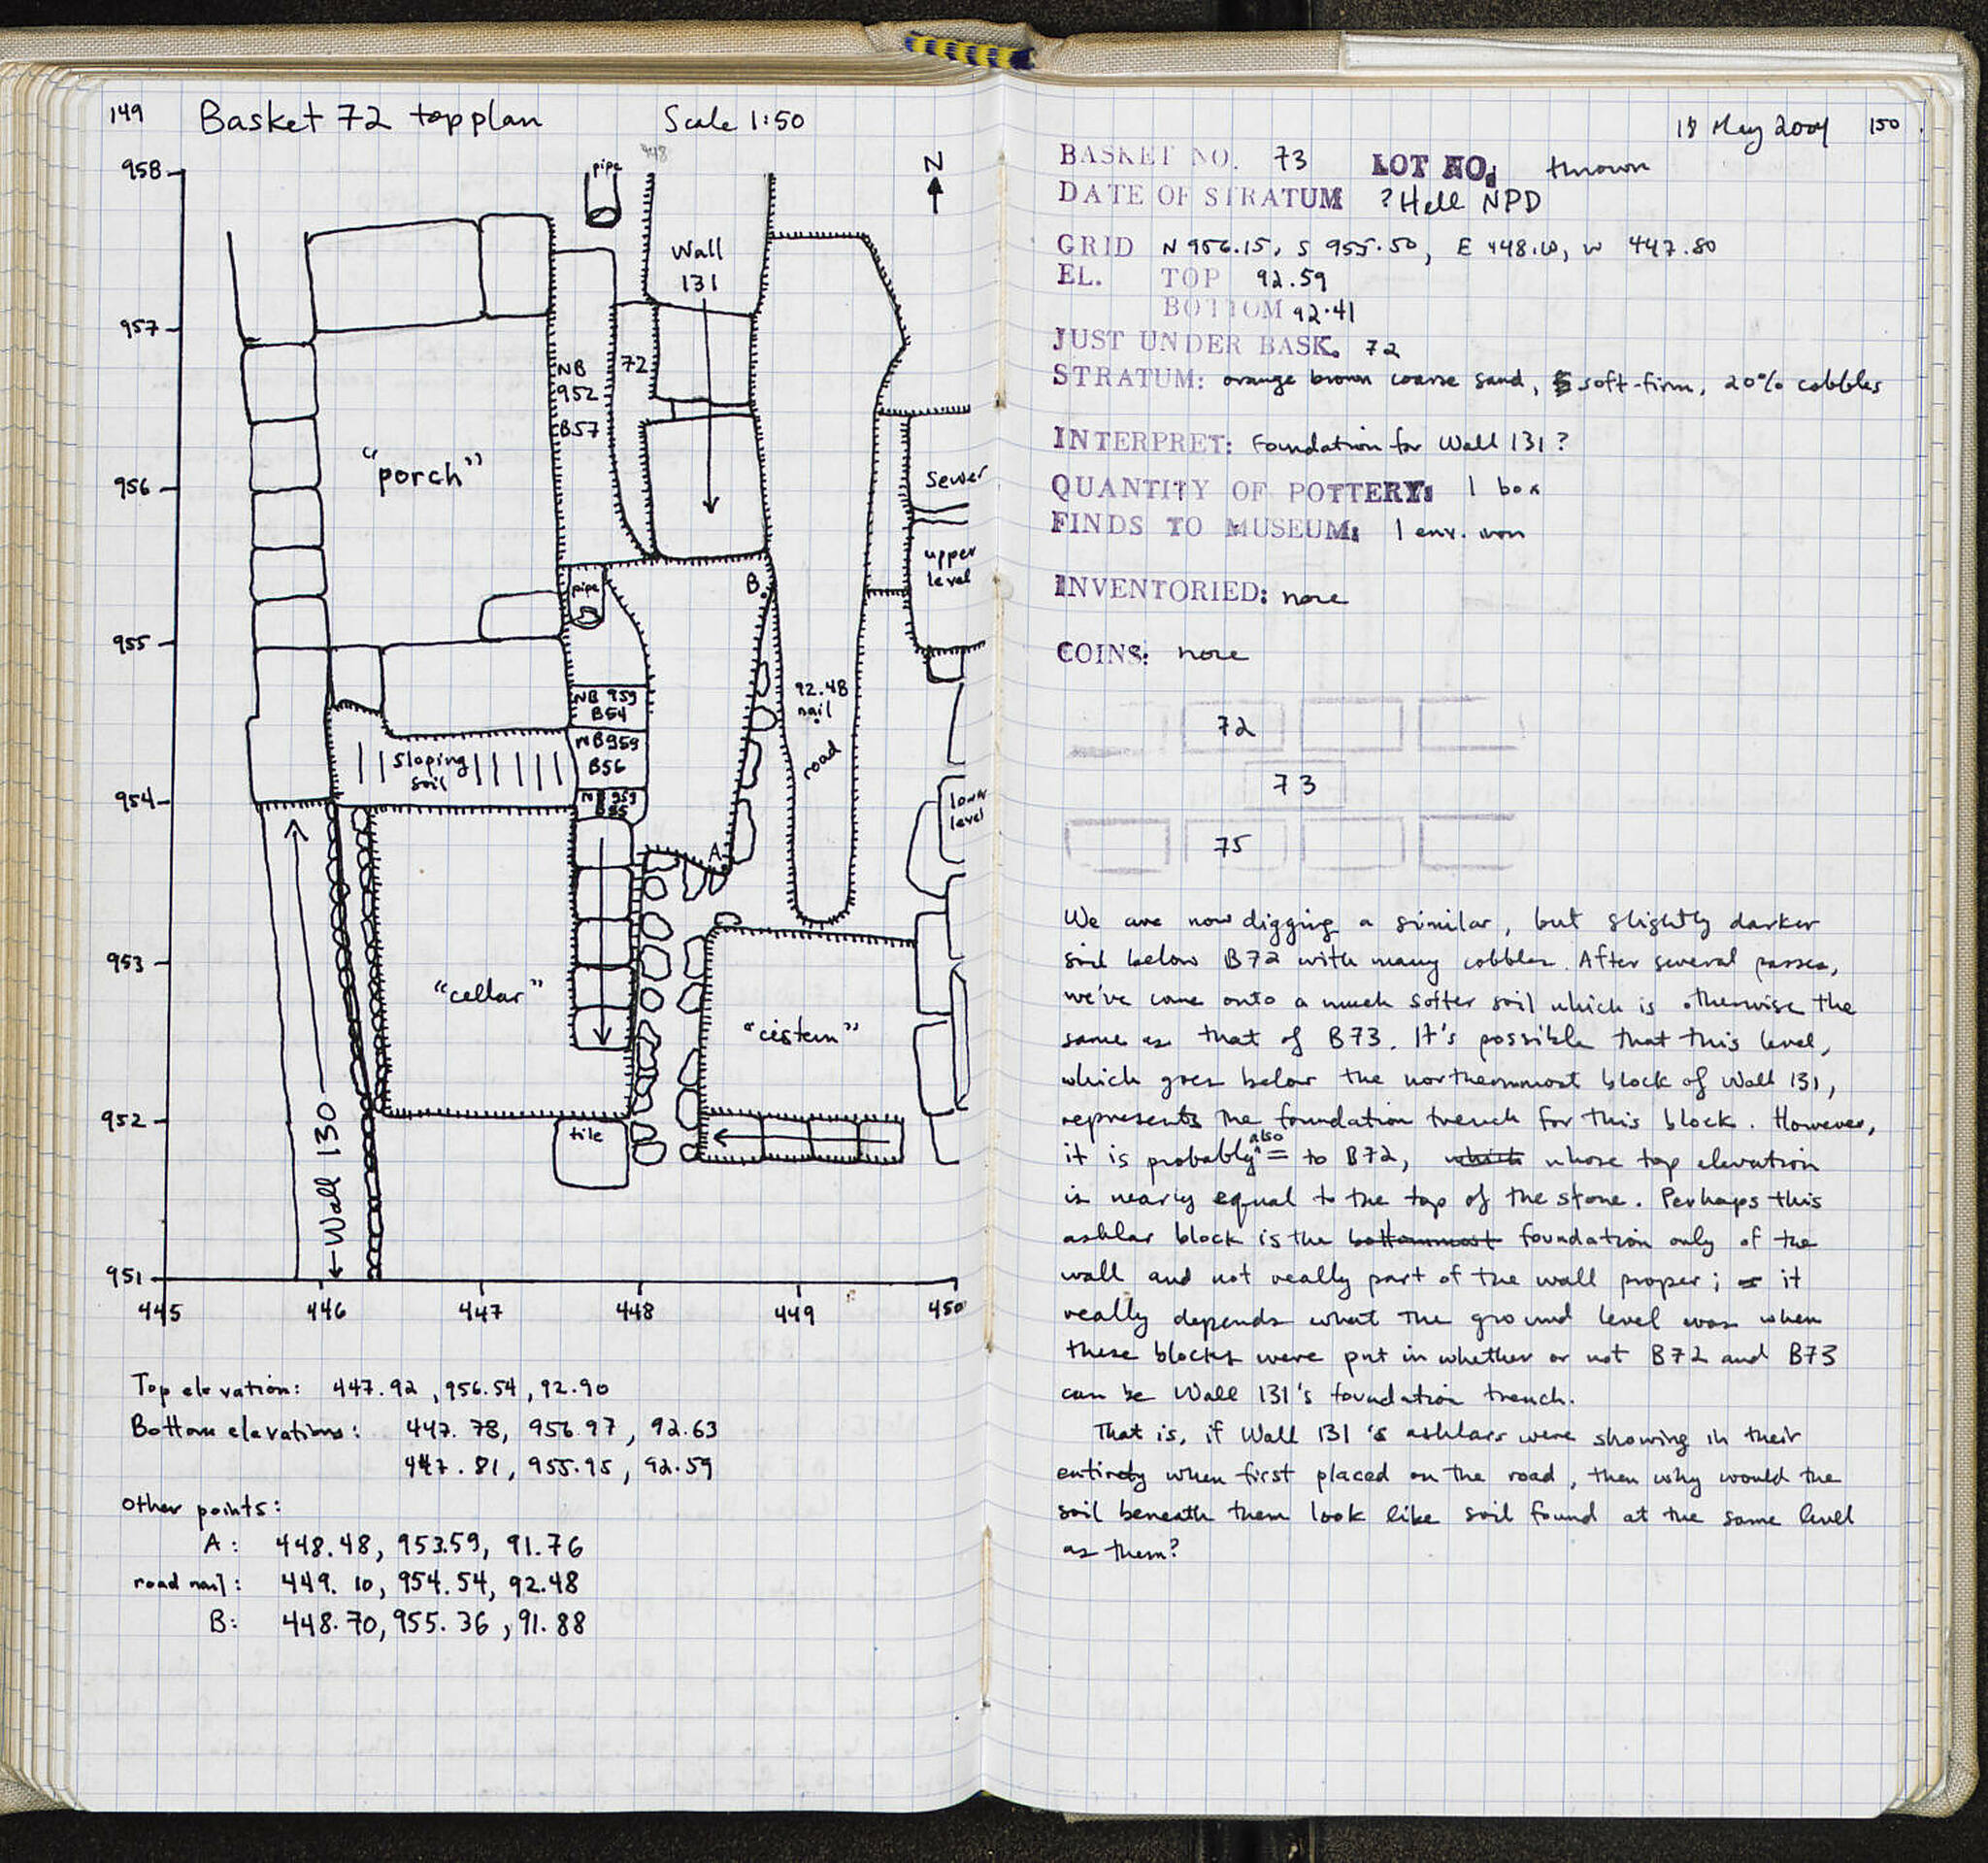 149 Basket 72 topplan Scale 1:50
448
958
pipe
N
Wall
131
957
NB
952
B57
72
"porch"
956
sewer
upper
level
B
pipe
955
92.48
nail
road
NB 959
B54
NB959
B56
sloping
soil
NB 959
954
lower
level
A
953
"cellar"
"cistern"
952
tile
Wall 130
951
445 446 447 448 449 450
Top elevation: 447.92, 956.54, 92.90
Bottom elevations: 447.78, 956.97, 92.63
447.81, 955.95, 92.59
other points:
A: 448.48, 953.59, 91.76
road nail: 449.10, 954.54, 92.48
B: 448.70, 955.36, 91.88
18 May 2004 150
BASKET NO. 73 LOT NO: thrown
DATE OF STRATUM ?Hell NPD
GRID N 956.15, S 955.50, E 448.10, W 447.80
EL. TOP 92.59
BOTTOM 92.41
JUST UNDER BASK. 72
STRATUM: orange brown coarse sand, soft-firm, 20% cobbles
INTERPRET: Foundation for Wall 131?
QUANTITY OF POTTERY: 1 box
FINDS TO MUSEUM: 1 env. iron
INVENTORIED: none
COINS: none
72
73
75
We are now digging a similar, but slightly darker
soil below B72 with many cobbles. After several passes,
we've come onto a much softer soil which is otherwise the
same as that of B73. It's possible that this level,
which goes below the northernmost block of Wall 131,
represents the foundation trench for this block. However,
it is probably also = to B72, which whose top elevation
is nearly equal to the top of the stone. Perhaps this
ashlar block is the bottommost foundation only of the
wall and not really part of the wall proper; it
really depends what the ground level was when
these blocks were put in whether or not B72 and B73
can be Wall 131's foundation trench.
That is, if Wall 131's ashlars were showing in their
entirety when first placed on the road, then why would the
soil beneath them look like soil found at the same level
as them?